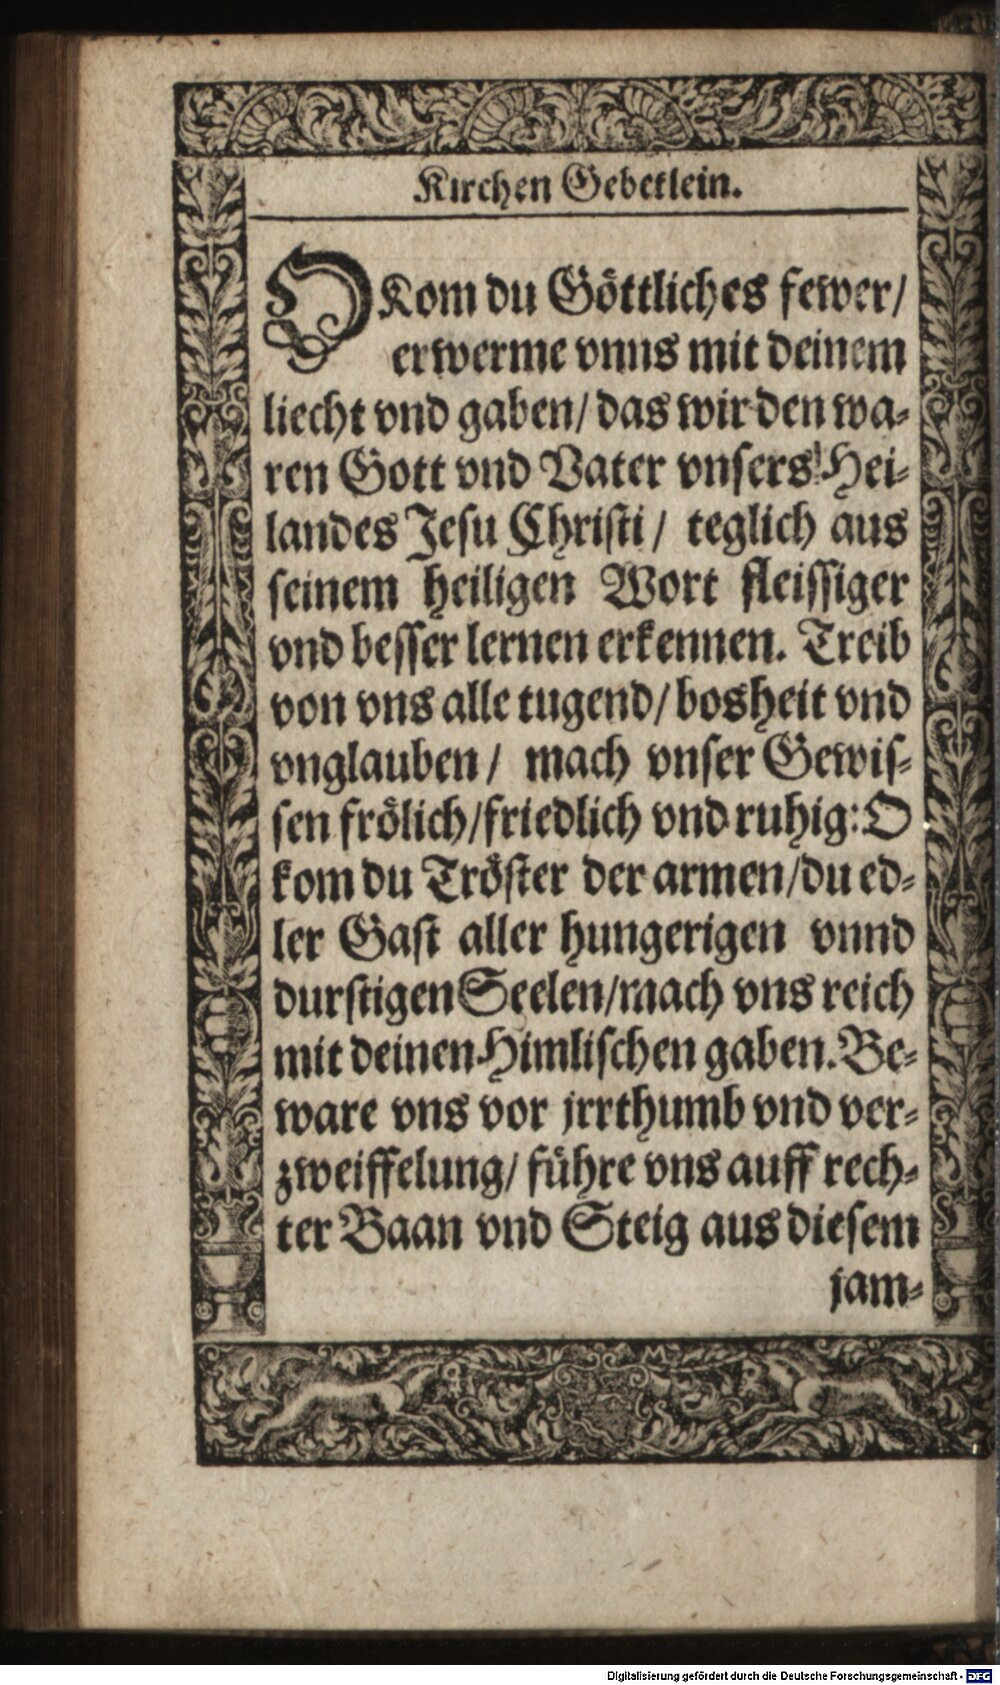 Kirchen Gebetlein.
O Kom du Göttliches fewer/
erwerme vnns mit deinem
liecht vnd gaben/ das wir den wa-
ren Gott vnd Vater vnsers Hei-
landes Jesu Christi/ teglich aus
seinem heiligen Wort fleissiger
vnd besser lernen erkennen. Treib
von vns alle tugend/ bosheit vnd
vnglauben/ mach vnser Gewis-
sen frölich/ friedlich vnd ruhig: O
kom du Tröster der armen/ du ed-
ler Gast aller hungerigen vnnd
durstigen Seelen/ maach vns reich
mit deinen Himlischen gaben. Be-
ware vns vor jrrthumb vnd ver-
zweiffelung/ führe vns auff rech-
ter Baan vnd Steig aus diesem
jam-
Digitalisierung gefördert durch die Deutsche Forschungsgemeinschaft - DFG